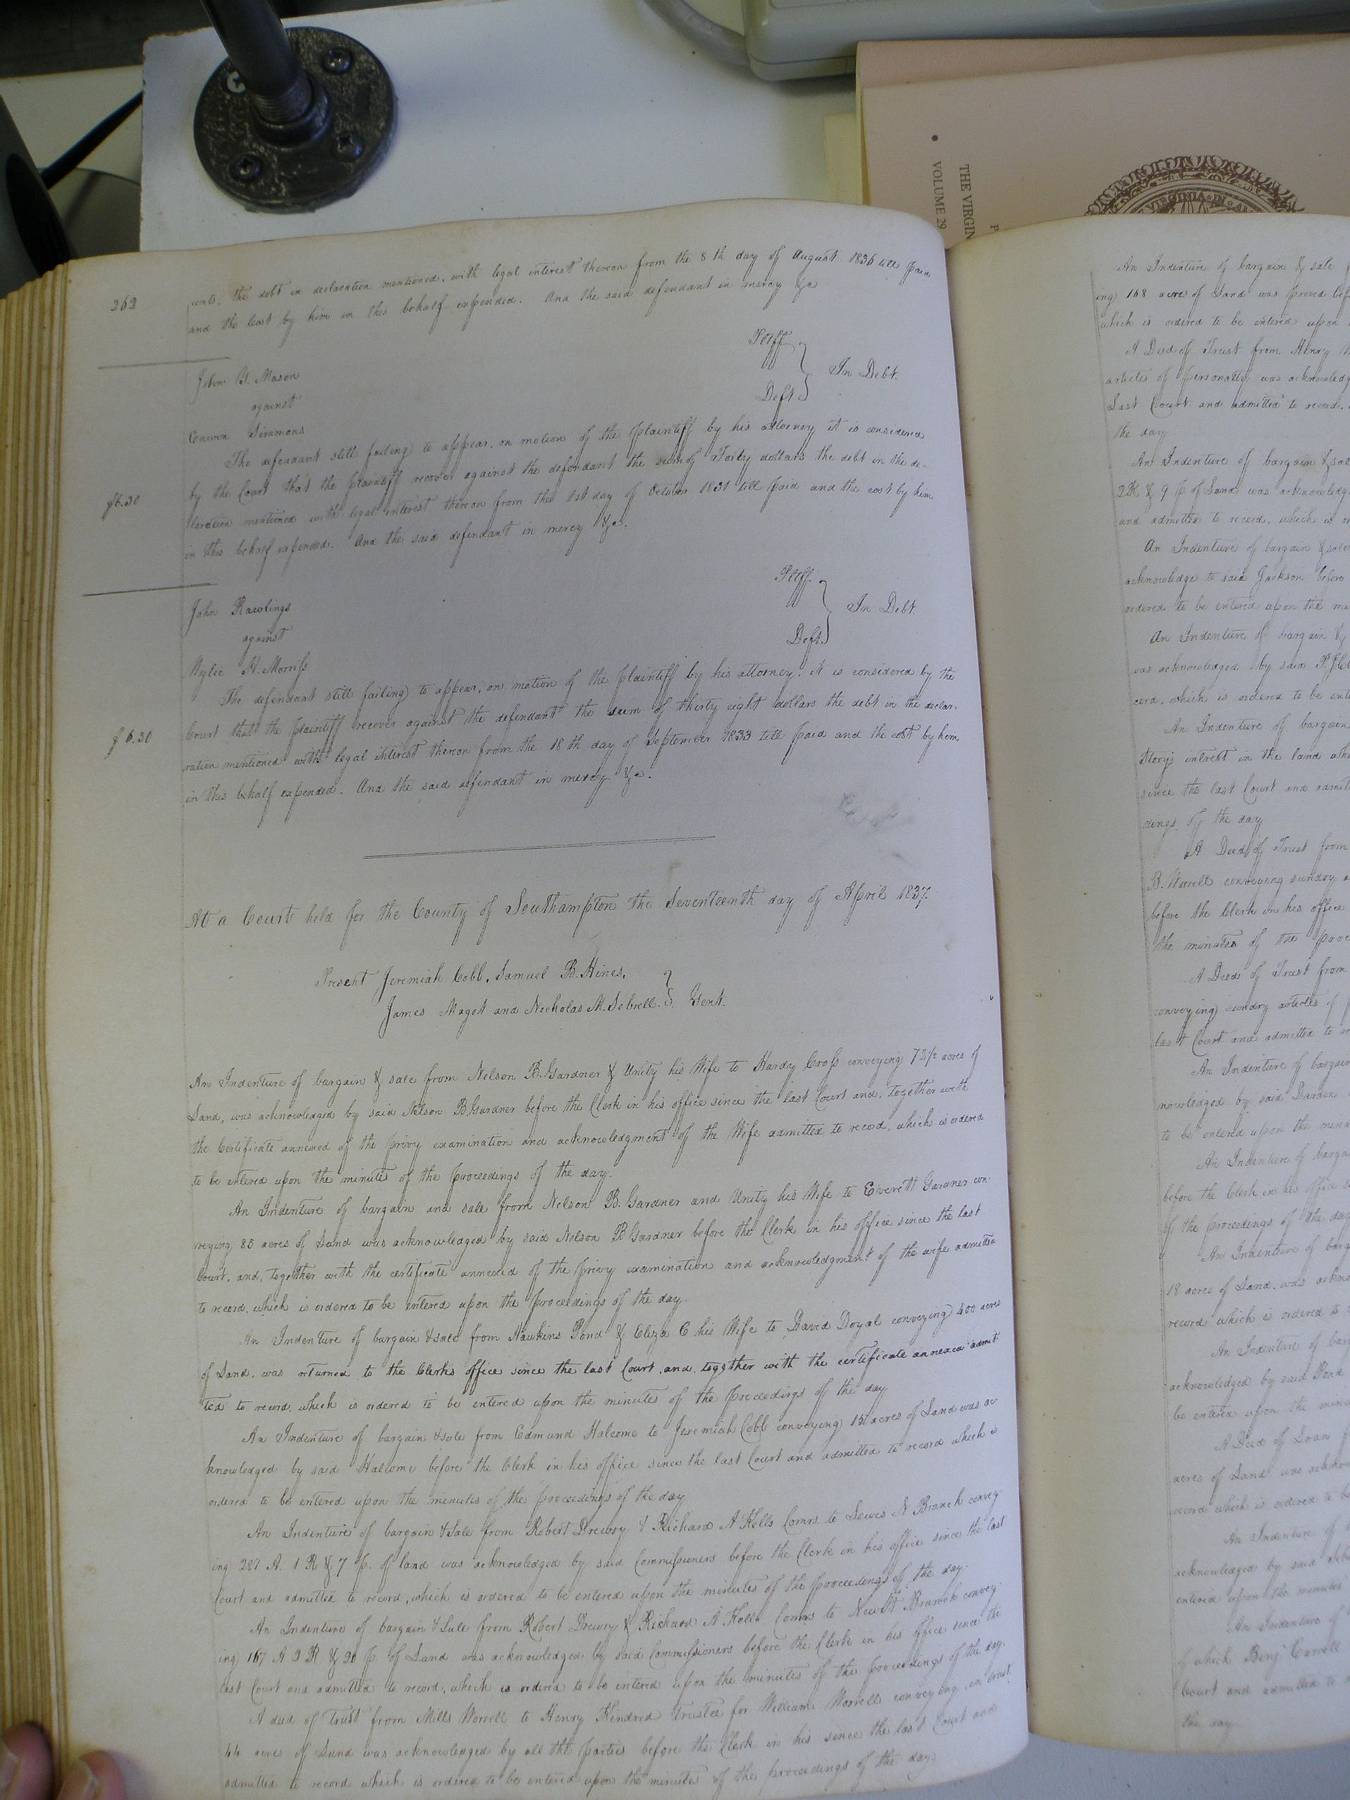 THE VIRGIN
VOLUME 29
VIRGINIA IN A
262
cents, the debt in declaration mentioned, with legal interest thereon from the 8th day of August 1836 till paid
and the Cost by him in this behalf expended. And the said defendant in mercy &c
John Y. Mason Plff
against In Debt.
Simmons Deft.
The defendant still failing to appear, on motion of the plaintiff by his attorney it is considered
by the Court that the plaintiff recover against the defendant the sum of Forty dollars the debt in the de-
$6.30
claration mentioned with legal interest thereon from the 1st day of October 1831 till paid and the cost by him
in this behalf expended. And the said defendant in mercy &c.
John Rawlings Plff.
against In Debt.
Wylie H. Morriss Deft.
The defendant still failing to appear, on motion of the plaintiff by his attorney, it is considered by the
Court that the plaintiff recover against the defendant the sum of thirty eight dollars the debt in the decla-
$6.30
ration mentioned with legal interest thereon from the 18th day of September 1833 till paid and the cost by him
in this behalf expended. And the said defendant in mercy &c.
At a Court held for the County of Southampton the Seventeenth day of April 1837.
Present Jeremiah Cobb, Samuel B. Hines,
James Maget and Nicholas M. Sebrell. Gent.
An Indenture of bargain & sale from Nelson B. Gardner & Unity his Wife to Hardy Cross conveying 73½ acres of
Land, was acknowledged by said Nelson B Gardner before the Clerk in his office since the last Court and, together with
the Certificate annexed of the privy examination and acknowledgment of the Wife admitted to record, which is ordered
to be entered upon the minutes of the proceedings of the day.
An Indenture of bargain and sale from Nelson B. Gardner and Unity his Wife to Everett Gardner con-
veying 85 acres of Land was acknowledged by said Nelson B Gardner before the Clerk in his office since the last
Court, and, together with the certificate annexed of the privy examination and acknowledgment of the wife admitted
to record, which is ordered to be entered upon the proceedings of the day.
An Indenture of bargain & sale from Hawkins Pond & Eliza C his Wife to David Doyal conveying 400 acres
of Land, was returned to the Clerks office since the last Court, and, together with the certificate annexed admit-
ted to record, which is ordered to be entered upon the minutes of the proceedings of the day
An Indenture of bargain & sale from Edmund Halcome to Jeremiah Cobb conveying 151 acres of Land was ac
knowledged by said Halcome before the Clerk in his office since the last Court and admitted to record which is
ordered to be entered upon the minutes of the proceedings of the day
An Indenture of bargain & Sale from Robert Drewry & Richard A Kello Comrs to Lewis N Branch convey-
ing 287 A. 1 R & 7 P. of land was acknowledged by said Commissioners before the Clerk in his office since the last
Court and admitted to record, which is ordered to be entered upon the minutes of the proceedings of the day.
An Indenture of bargain & Sale from Robert Drewry & Richard A Kello Comrs to Newitt Branch convey-
ing 167 A 2 R & 30 P. of Land was acknowledged by said Commissioners before the Clerk in his office since the
last Court and admitted to record, which is ordered to be entered upon the minutes of the proceedings of the day.
A deed of trust from Mills Worrell to Henry Kindred Trustee for William Worrells conveying in trust
44 acres of Land was acknowledged by all the parties before the Clerk in his since the last Court and
admitted to record which is ordered to be entered upon the minutes of the proceedings of the day.
An Indenture of bargain & sale
ing 168 acres of Land was proved bef
which is ordered to be entered upon
A Deed of Trust from Henry
articles of personalty was acknowledg
Last Court and admitted to record,
the day
An Indenture of bargain & sal
2R & 9 P of Land was acknowledg
and admitted to record, which is or
An Indenture of bargain & sale
acknowledge to said Jackson before
ordered to be entered upon the mi
An Indenture of bargain &
was acknowledged by said
cord, which is ordered to be ente
An Indenture of bargain
interest in the land whe
since the last Court and admit
dings of the day
A Deed of Trust from
B. Worrell conveying sundry a
before the Clerk in his office
the minutes of the proce
A Deed of Trust from
conveying sundry articles of p
last Court and admitted to
An Indenture of bargain
nowledged by said Darden
to be entered upon the minu
An Indenture of barga
before the Clerk in his office
of the proceedings of the day
An Indenture of barg
18 acres of Land, was ackno
record which is ordered to
An Indenture of bar
acknowledged by said Pond
be entered upon the minu
A Deed of Loan
acres of Land was ackno
record which is ordered to be
An Indenture of
acknowledged by said
entered upon the minutes
An Indenture of
of which Benj Carrell
Court and admitted to
the day